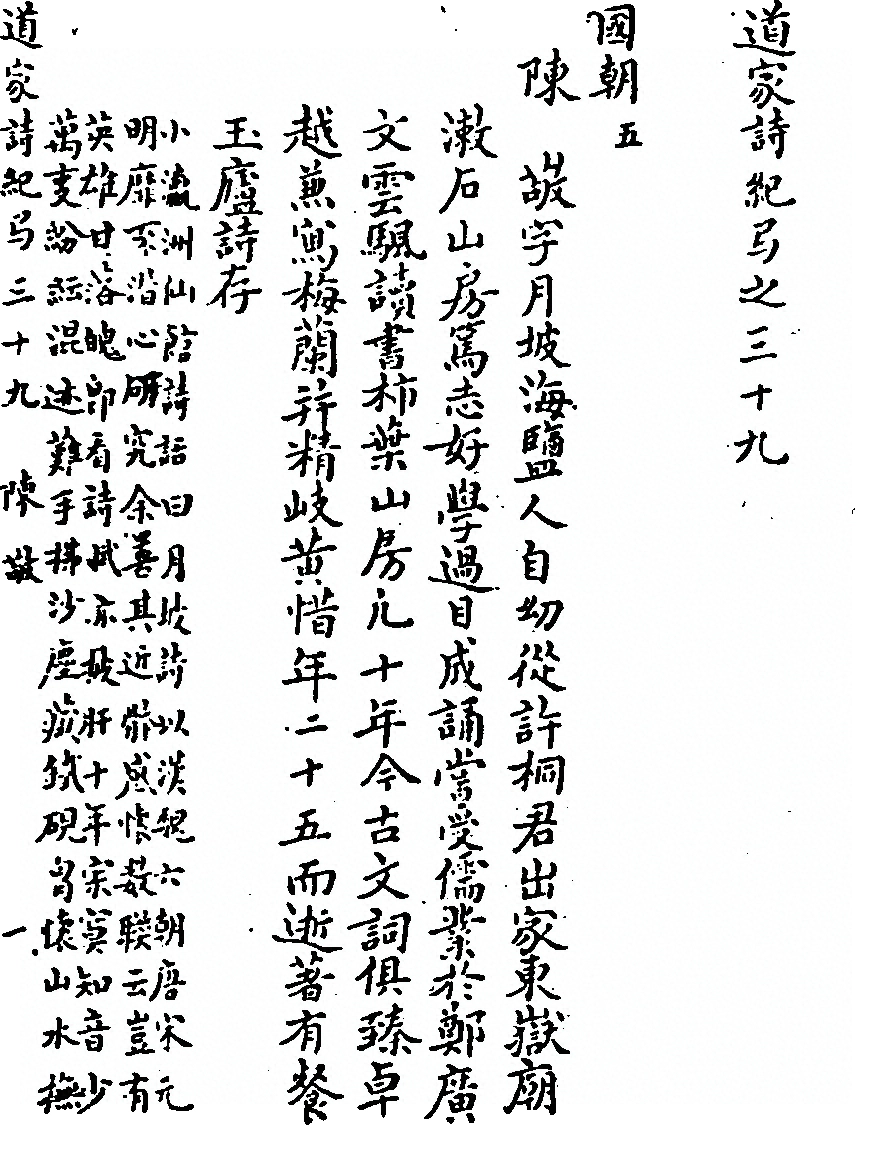 道家詩紀弓之三十九
國朝五
陳 敬字月坡海鹽人自幼從許桐君出家東嶽廟
漱石山房篤志好學過目成誦嘗受儒業於鄭廣
文雲颿讀書柿葉山房凢十年今古文詞俱臻卓
越兼寫梅蘭并精岐黃惜年二十五而逝著有餐
玉廬詩存
小瀛洲仙館詩話曰月坡詩以漢魏六朝唐宋元
明靡不潛心研究余善其近體感懷數聯云豈有
英雄甘落魄卽看詩賦亦披肝十年宗寞知音少
萬支紛紜混迹難手掃沙塵痕鐵硯胷懷山水撫
道家詩紀弓三十九 陳敬 一